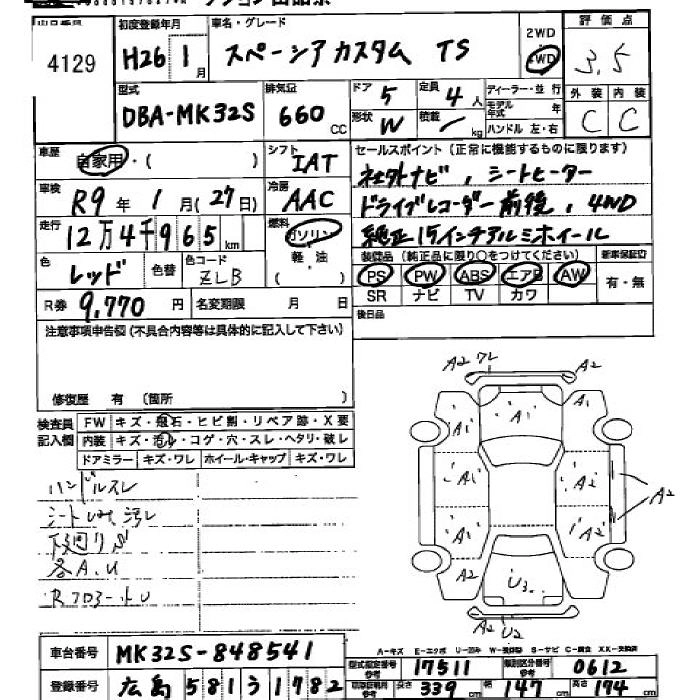 出品番号 4129
初度登録年月 H26 1月
車名・グレード スペーシアカスタム TS
2WD 4WD
評価点 3.5
外装 内装
C C
型式 DBA-MK32S
排気量 660 CC
ドア 5 定員 4人
形状 W 積載 / kg
ディーラー・並行
モデル年式 年
ハンドル 左・右
車歴 自家用・( )
シフト IAT
車検 R9年 1月 (27日)
冷房 AAC
走行 12万4千965 km
燃料 ガソリン 軽油 ( )
色 レッド 色替 色コード ZLB
R券 9,770円 名変期限 月 日
セールスポイント (正常に機能するものに限ります)
社外ナビ , シートヒーター
ドライブレコーダー前後 , 4WD
純正15インチアルミホイール
装備品 (純正品に限り○をつけてください) 新車保証書
PS PW ABS エアB AW 有・無
SR ナビ TV カワ
後日品
注意事項申告欄(不具合内容等は具体的に記入して下さい)
修復歴 有 (箇所
検査員記入欄
FW キズ・飛石・ヒビ割・リペア跡・X要
内装 キズ・汚レ・コゲ・穴・スレ・ヘタリ・破レ
ドアミラー キズ・ワレ ホイール・キャップ キズ・ワレ
ハンドルスレ
シートしみ、汚レ
下廻りサビ
各A.U
A2 ワレ A2
A1 A1 A1
A1 A2 A2
A1 A2
A2 U3 A2
A2 U2
A-キズ E-エクボ U-凹み W-波 S-サビ C-腐食 XX-交換済
車台番号 MK32S-848541
型式指定番号 参考 17511 類別区分番号 参考 0612
登録番号 広島 581 う 1782
長さ 339 cm 幅 147 cm 高さ 174 cm